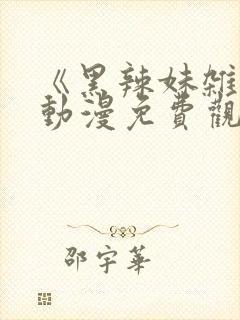 《黑辣妹雑
動漫免費觀
邵宇華